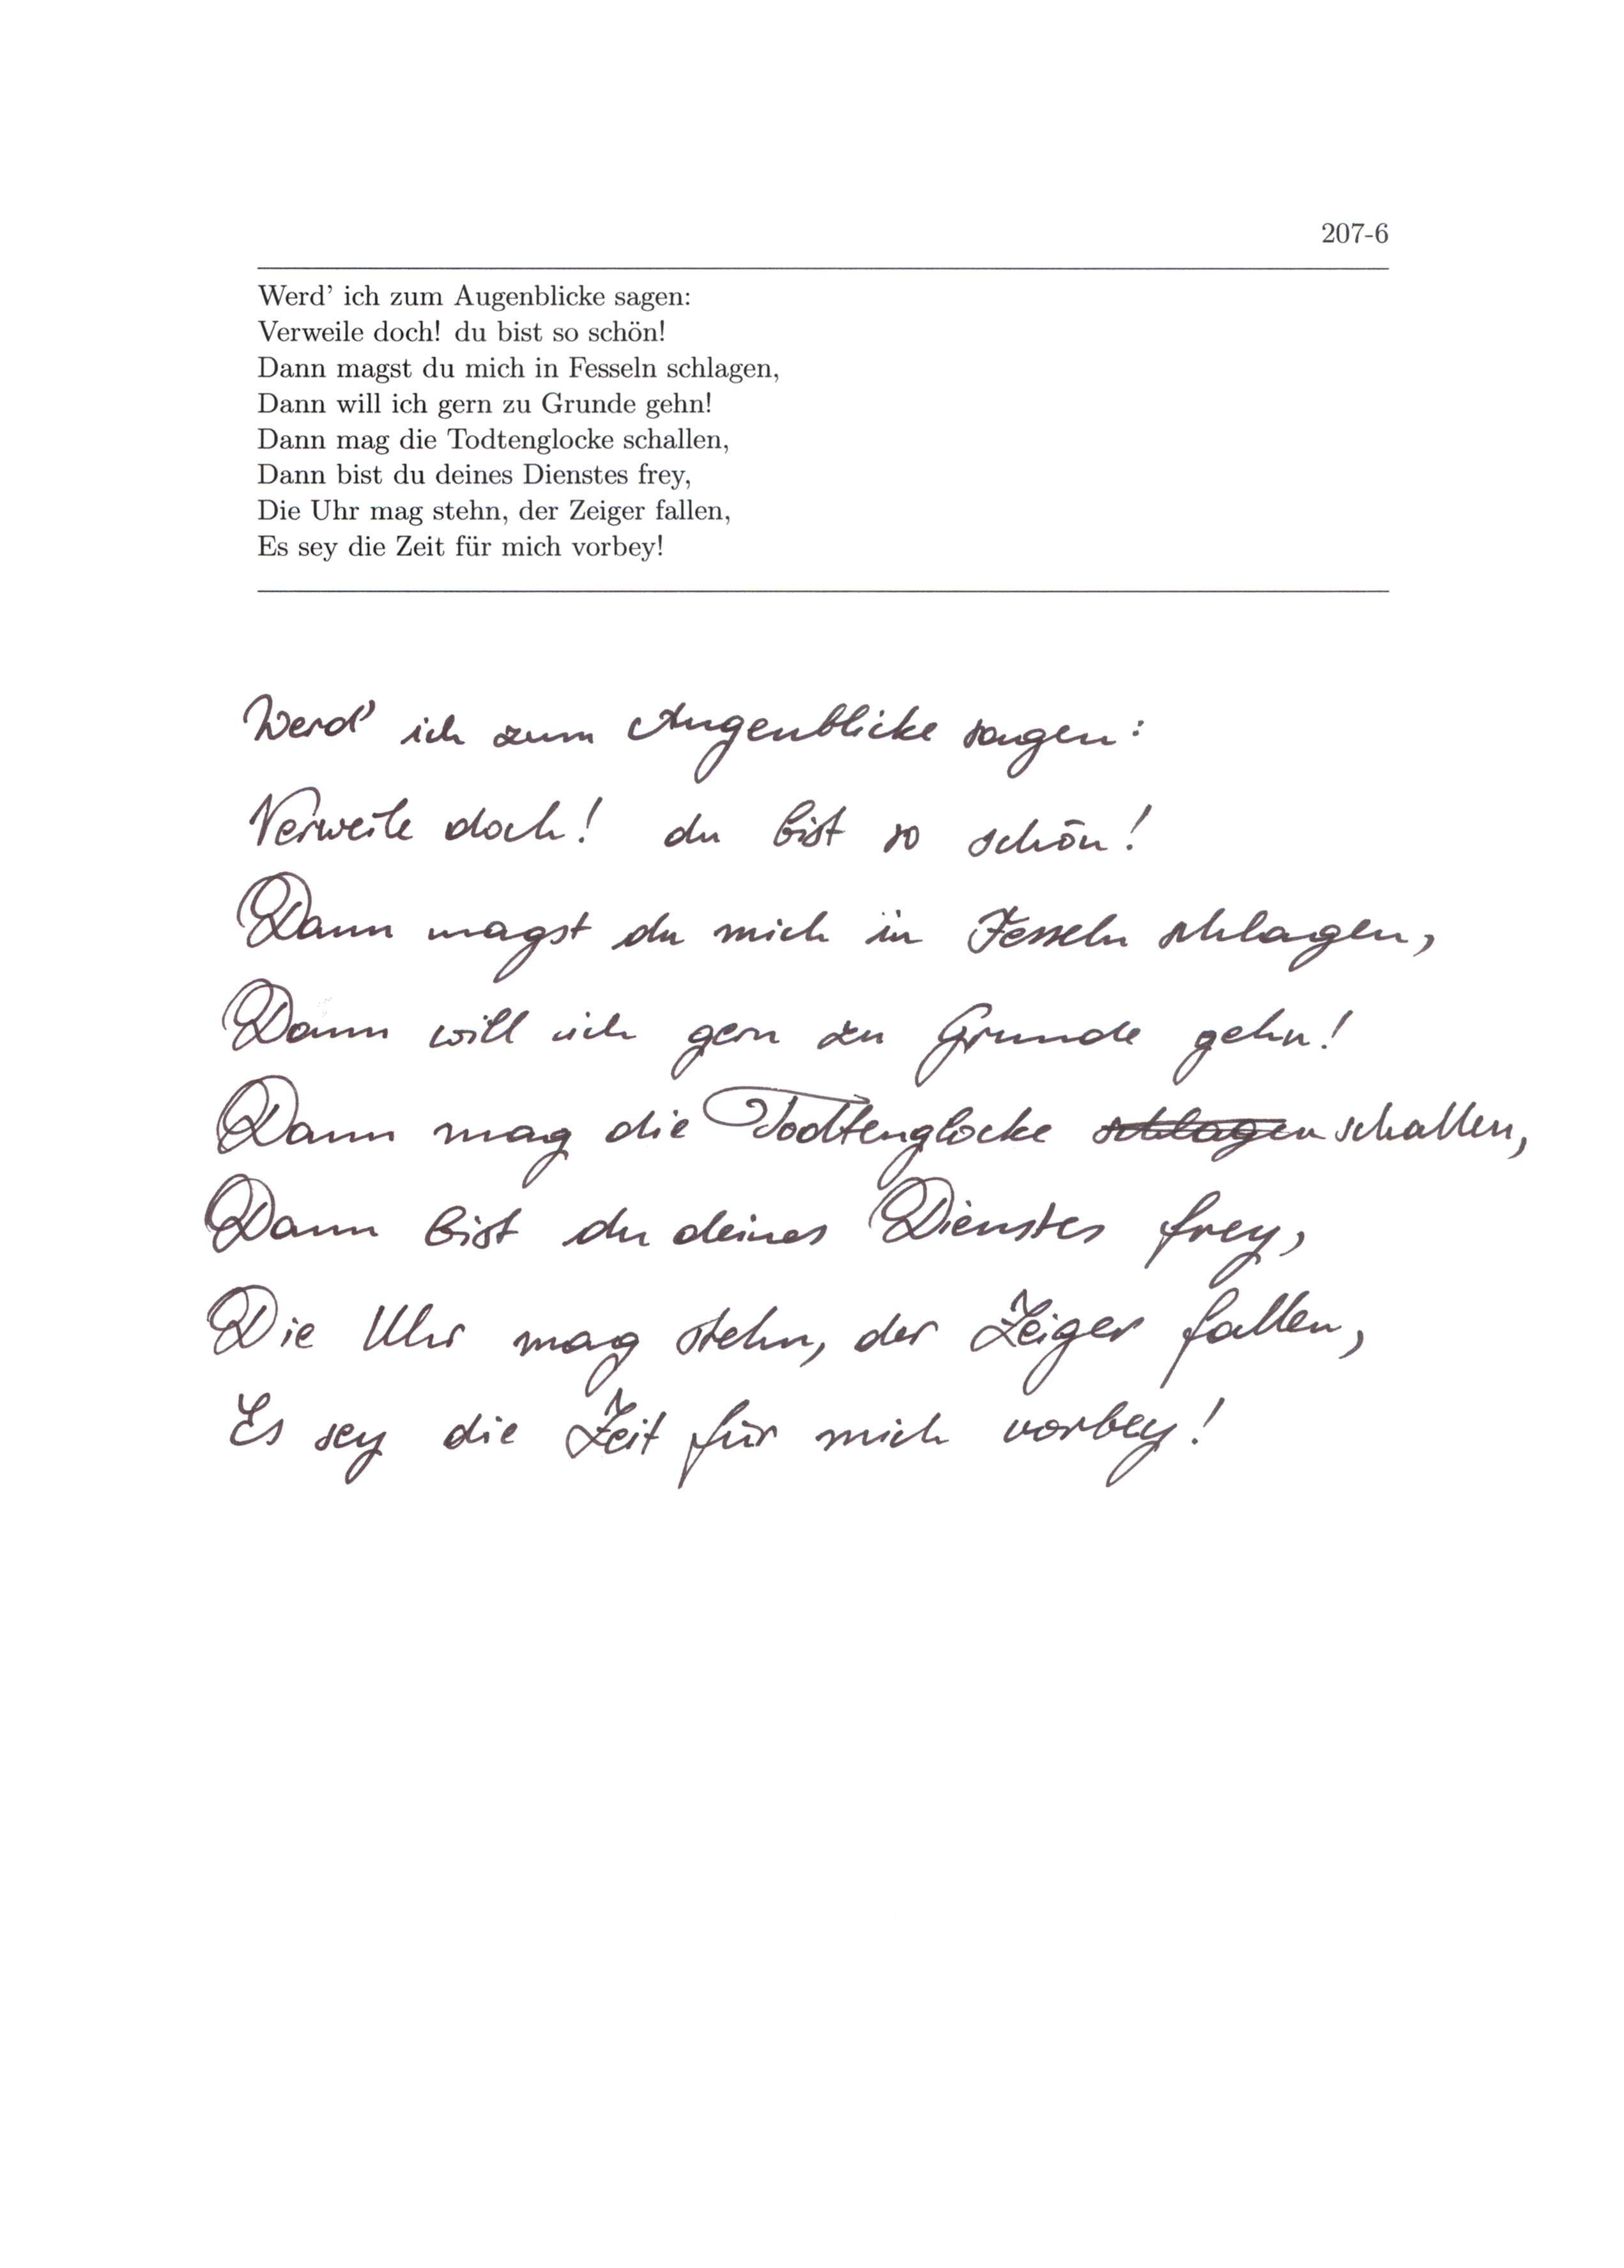 207-6
Werd' ich zum Augenblicke sagen:
Verweile doch! du bist so schön!
Dann magst du mich in Fesseln schlagen,
Dann will ich gern zu Grunde gehn!
Dann mag die Todtenglocke schallen,
Dann bist du deines Dienstes frey,
Die Uhr mag stehn, der Zeiger fallen,
Es sey die Zeit für mich vorbey!
Werd' ich zum Augenblicke sagen:
Verweile doch! du bist so schön!
Dann magst du mich in Fesseln schlagen,
Dann will ich gern zu Grunde gehn!
Dann mag die Todtenglocke schlagen schallen,
Dann bist du deines Dienstes frey,
Die Uhr mag stehn, der Zeiger fallen,
Es sey die Zeit für mich vorbey!